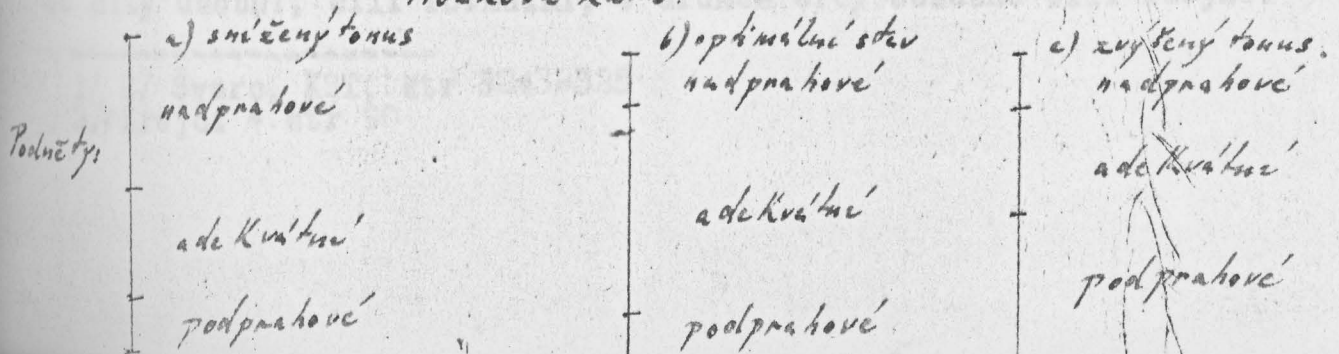 a) snížený tonus
nadprahové
Podněty:
adekvátní
podprahové
b) optimální stav
nadprahové
adekvátní
podprahové
c) zvýšený tonus.
nadprahové
adekvátní
podprahové